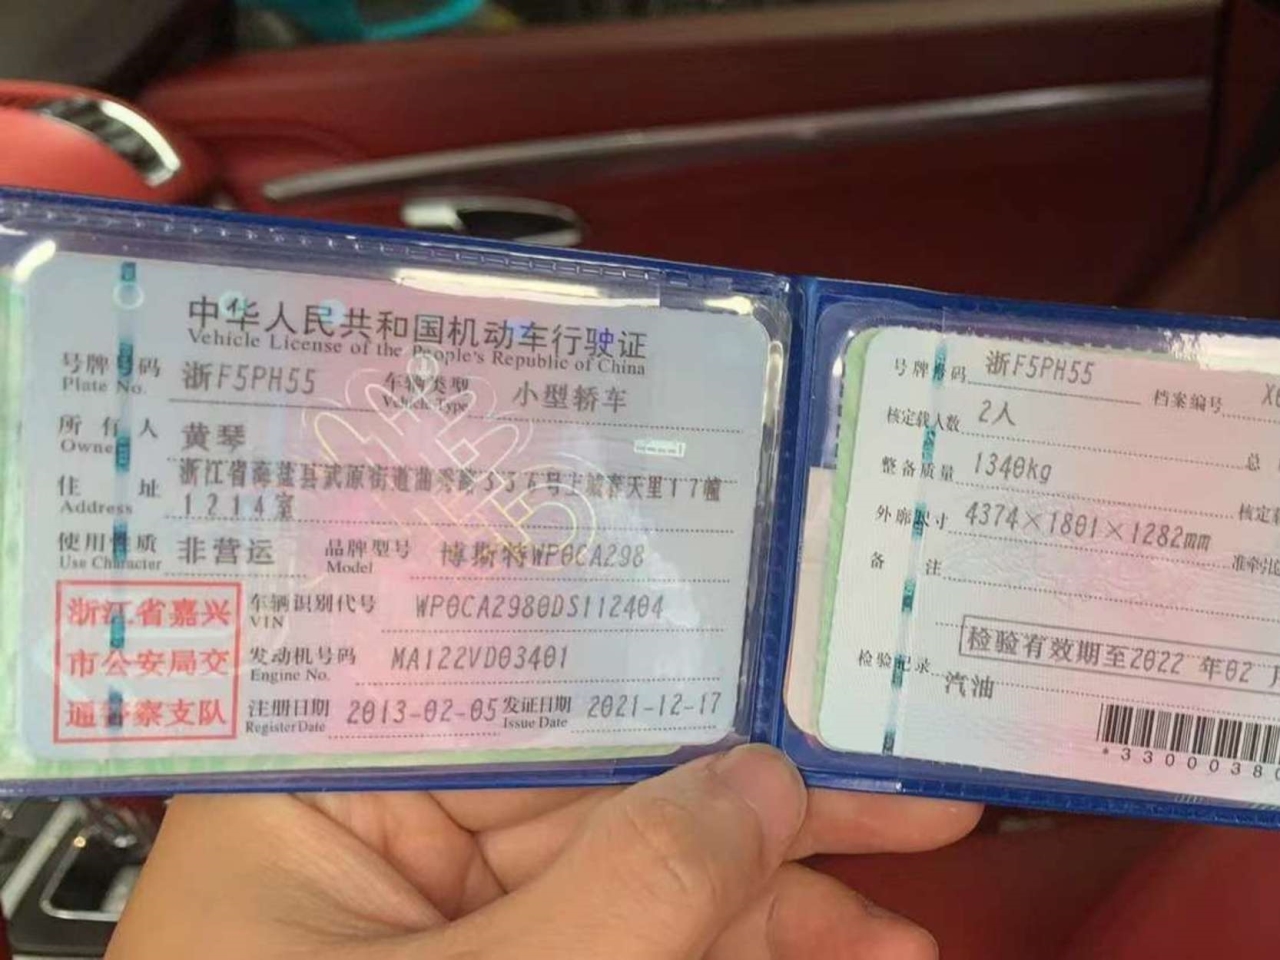 中华人民共和国机动车行驶证
Vehicle License of the People's Republic of China
号牌号码 浙F5PH55 车辆类型 小型轿车
Plate No. Vehicle Type
所有人 黄琴
Owner
住址 浙江省海盐县武原街道曲秀路336号主城春天里17幢
Address 1214室
使用性质 非营运 品牌型号 博斯特WP0CA298
Use Character Model
浙江省嘉兴
市公安局交
通警察支队
车辆识别代号 WP0CA2980DS112404
VIN
发动机号码 MA122VD03401
Engine No.
注册日期 2013-02-05 发证日期 2021-12-17
Register Date Issue Date
号牌号码 浙F5PH55 档案编号
核定载人数 2人 总
整备质量 1340kg 核定
外廓尺寸 4374×1801×1282mm 准牵引
备注
检验有效期至2022 年02 月
检验记录
汽油
*3300038